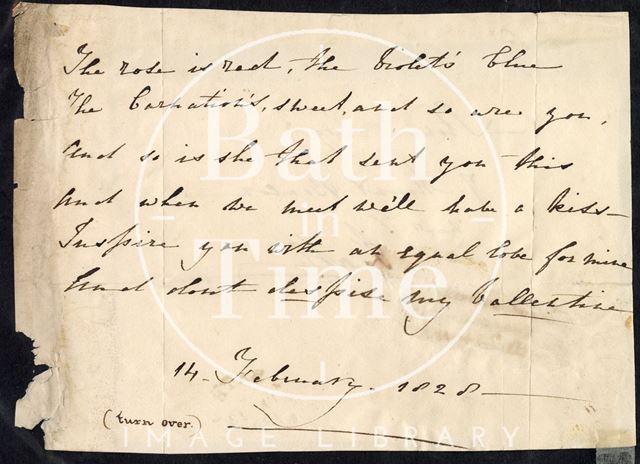 The rose is red, the Violet's blue
The Carnation's, sweet, and so are you,
And so is she that sent you this
And when we meet we'll have a kiss—
Inspire you with an equal love for mine
And don't despise my Vallentine
14 - February - 1828 —
(turn over.)
Bath
in
Time
IMAGE LIBRARY